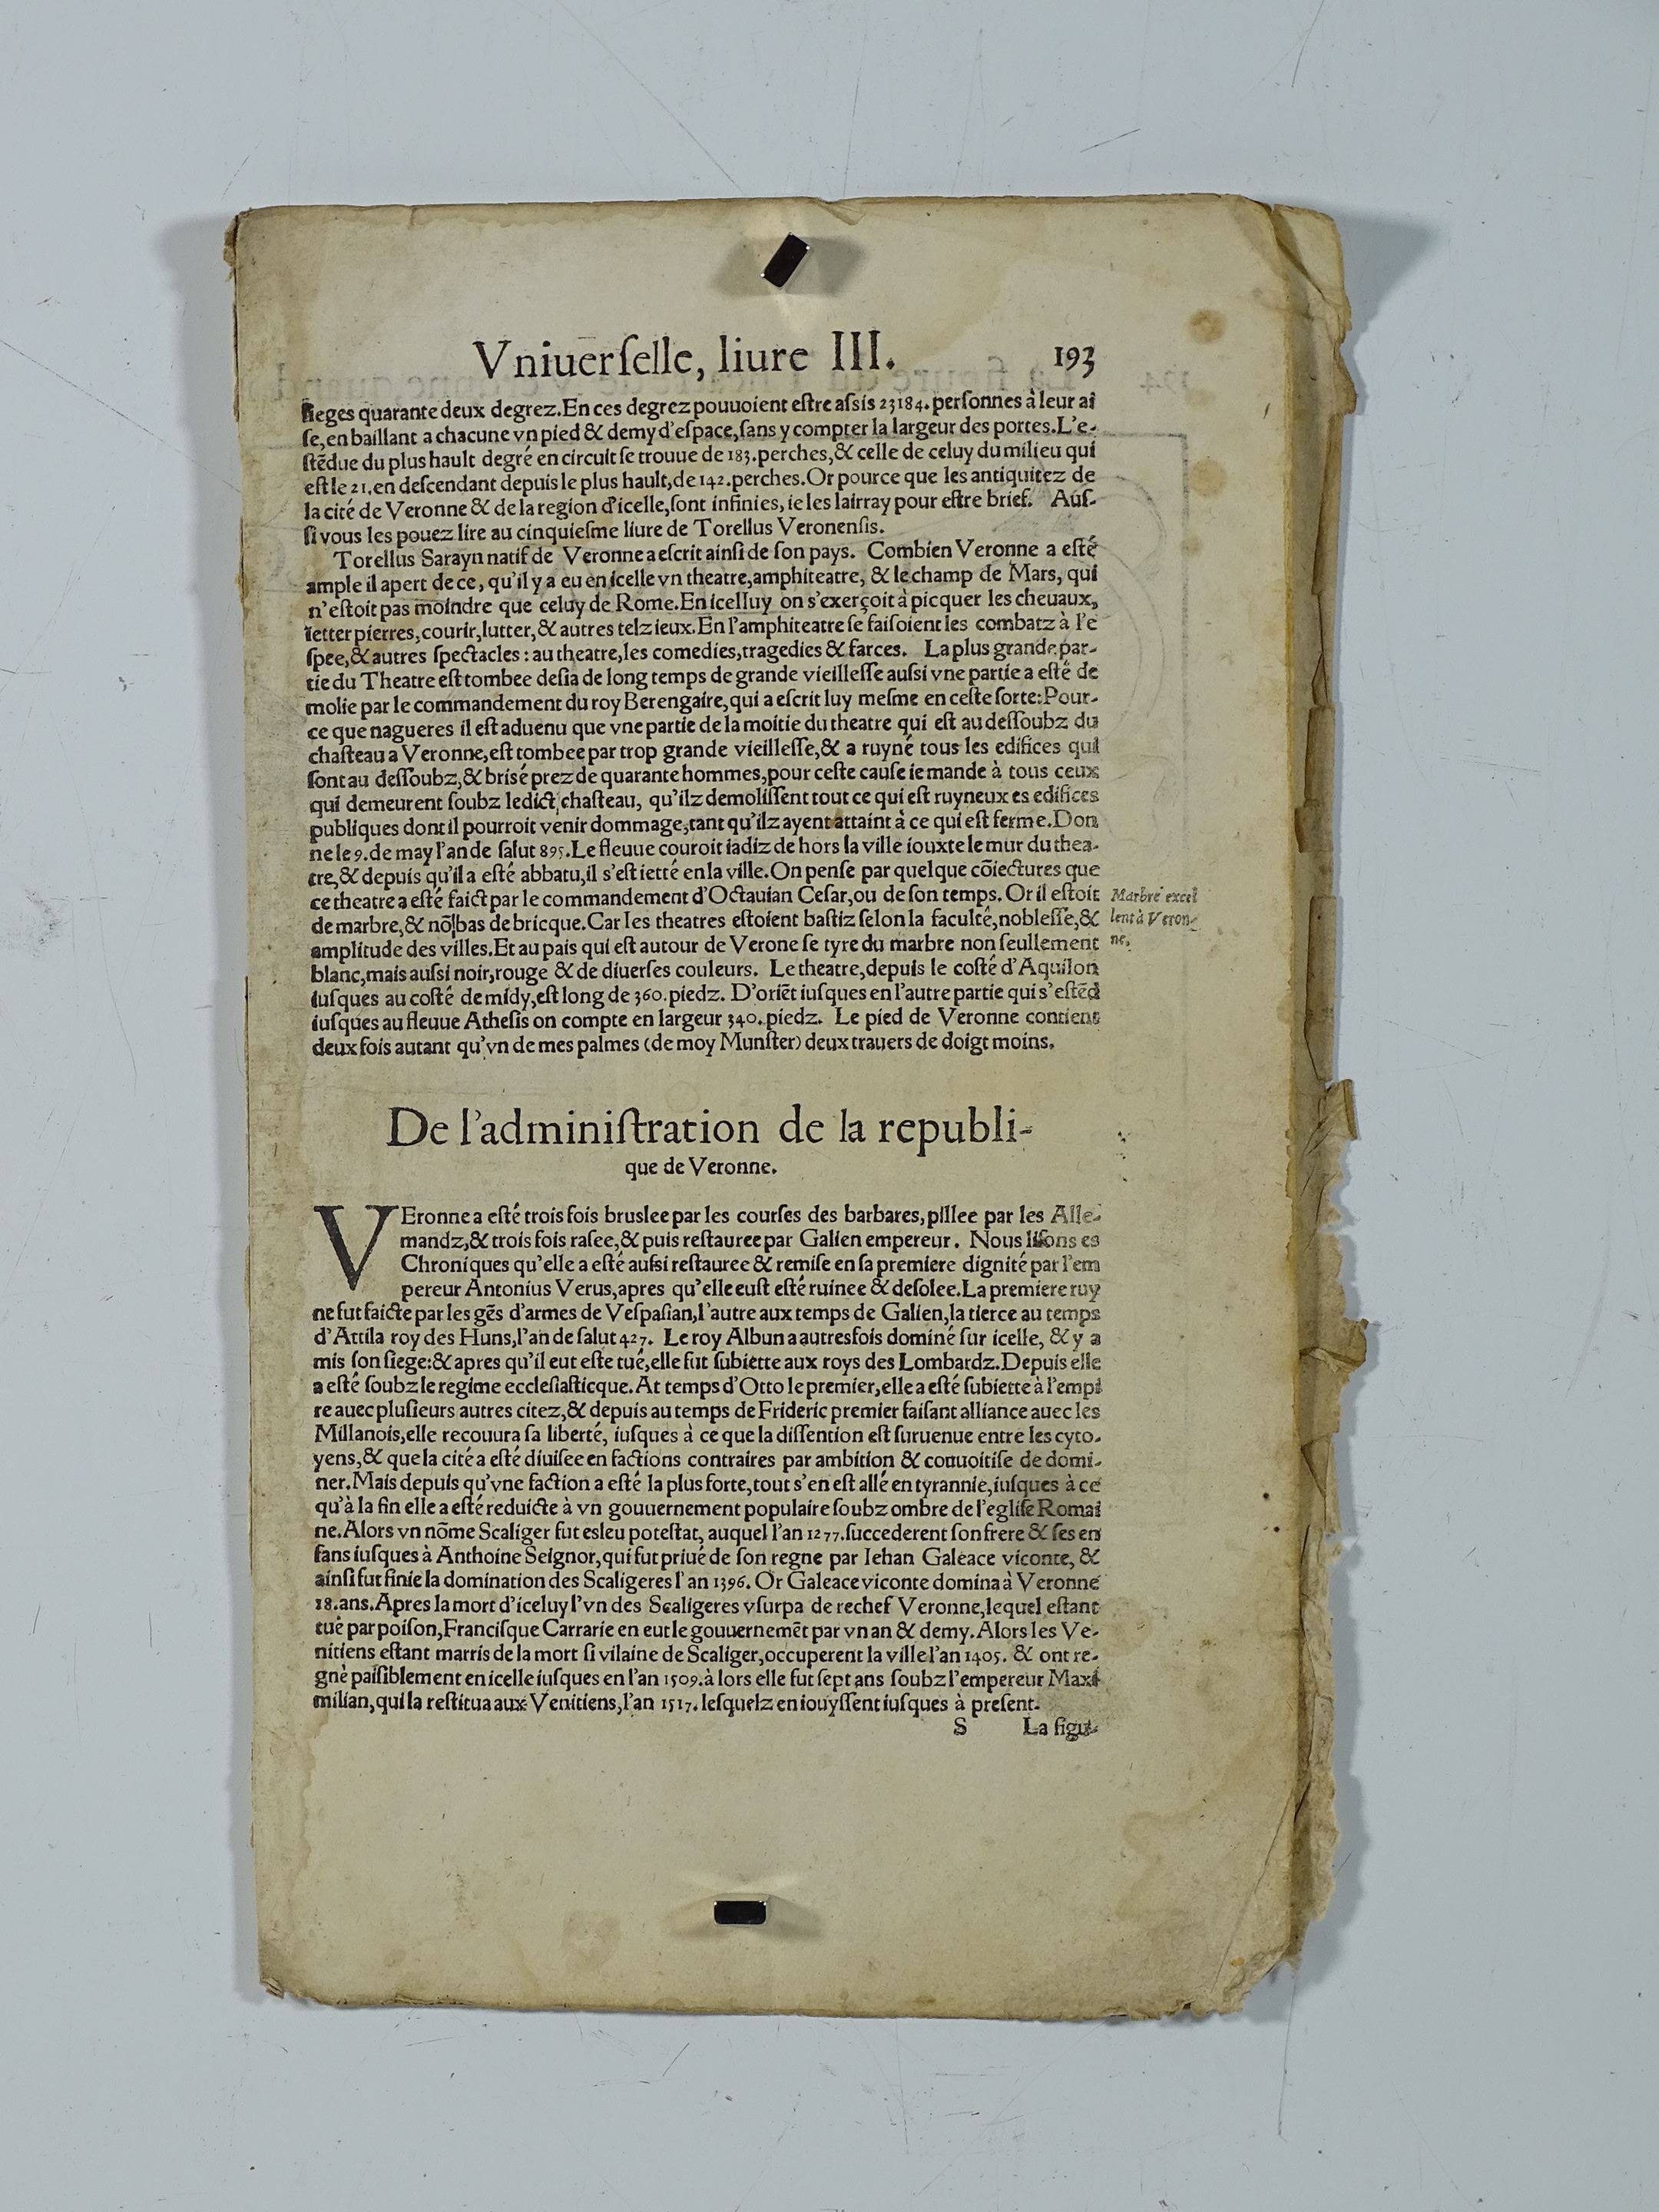 Vniuerſelle, liure III. 193
ſieges quarante deux degrez.En ces degrez pouuoient eſtre aſsis 23184. perſonnes à leur ai
ſe,en baillant a chacune vn pied & demy d'eſpace,ſans y compter la largeur des portes.L'e-
ſtẽdue du plus hault degré en circuit ſe trouue de 183.perches,& celle de celuy du milieu qui
eſt le 21.en deſcendant depuis le plus hault,de 142.perches.Or pource que les antiquitez de
la cité de Veronne & de la region d'icelle,ſont infinies,ie les lairray pour eſtre brief. Auſ-
ſi vous les pouez lire au cinquieſme liure de Torellus Veronenſis.
Torellus Sarayn natif de Veronne a eſcrit ainſi de ſon pays. Combien Veronne a eſté
ample il apert de ce, qu'il y a eu en icelle vn theatre,amphiteatre, & le champ de Mars, qui
n'eſtoit pas moindre que celuy de Rome.En icelluy on s'exerçoit à picquer les cheuaux,
ietter pierres,courir,lutter,& autres telz ieux.En l'amphiteatre ſe faiſoient les combatz à l'e
ſpee,& autres ſpectacles : au theatre,les comedies,tragedies & farces. La plus grande par-
tie du Theatre eſt tombee deſia de long temps de grande vieilleſſe auſsi vne partie a eſté de
molie par le commandement du roy Berengaire,qui a eſcrit luy meſme en ceſte ſorte:Pour-
ce que nagueres il eſt aduenu que vne partie de la moitie du theatre qui eſt au deſſoubz du
chaſteau a Veronne,eſt tombee par trop grande vieilleſſe,& a ruyné tous les edifices qui
ſont au deſſoubz,& briſé prez de quarante hommes,pour ceſte cauſe ie mande à tous ceux
qui demeurent ſoubz ledict chaſteau, qu'ilz demoliſſent tout ce qui eſt ruyneux es edifices
publiques dont il pourroit venir dommage,tant qu'ilz ayent attaint à ce qui eſt ferme.Don
ne le 9.de may l'an de ſalut 895.Le fleuue couroit iadiz de hors la ville iouxte le mur du thea-
tre,& depuis qu'il a eſté abbatu,il s'eſt ietté en la ville.On penſe par quelque cõiectures que
ce theatre a eſté faict par le commandement d'Octauian Ceſar,ou de ſon temps. Or il eſtoit
de marbre,& nõ bas de bricque.Car les theatres eſtoient baſtiz ſelon la faculté,nobleſſe,&
amplitude des villes.Et au pais qui eſt autour de Verone ſe tyre du marbre non ſeullement
blanc,mais auſsi noir,rouge & de diuerſes couleurs. Le theatre,depuis le coſté d'Aquilon
iuſques au coſté de midy,eſt long de 360.piedz. D'oriẽt iuſques en l'autre partie qui s'eſtẽd
iuſques au fleuue Atheſis on compte en largeur 340.piedz. Le pied de Veronne contient
deux fois autant qu'vn de mes palmes (de moy Munſter) deux trauers de doigt moins.
Marbre excel
lent à Veron-
ne.
De l'adminiſtration de la republi-
que de Veronne.
VEronne a eſté trois fois bruslee par les courſes des barbares,pillee par les Alle-
mandz,& trois fois raſee,& puis reſtauree par Galien empereur. Nous liſons es
Chroniques qu'elle a eſté auſsi reſtauree & remiſe en ſa premiere dignité par l'em
pereur Antonius Verus,apres qu'elle euſt eſté ruinee & deſolee.La premiere ruy
ne fut faicte par les gẽs d'armes de Veſpaſian,l'autre aux temps de Galien,la tierce au temps
d'Attila roy des Huns,l'an de ſalut 427. Le roy Albun a autresfois dominé ſur icelle, & y a
mis ſon ſiege:& apres qu'il eut eſte tué,elle fut ſubiette aux roys des Lombardz.Depuis elle
a eſté ſoubz le regime eccleſiaſticque.At temps d'Otto le premier,elle a eſté ſubiette à l'empi
re auec pluſieurs autres citez,& depuis au temps de Frideric premier faiſant alliance auec les
Millanois,elle recouura ſa liberté, iuſques à ce que la diſſention eſt ſuruenue entre les cyto-
yens,& que la cité a eſté diuiſee en factions contraires par ambition & conuoitiſe de domi-
ner.Mais depuis qu'vne faction a eſté la plus forte,tout s'en eſt allé en tyrannie,iuſques à ce
qu'à la fin elle a eſté reduicte à vn gouuernement populaire ſoubz ombre de l'egliſe Romai
ne.Alors vn nõme Scaliger fut esleu poteſtat, auquel l'an 1277.ſuccederent ſon frere & ſes en
fans iuſques à Anthoine Seignor,qui fut priué de ſon regne par Iehan Galeace viconte, &
ainſi fut finie la domination des Scaligeres l'an 1396. Or Galeace viconte domina à Veronne
18.ans.Apres la mort d'iceluy l'vn des Scaligeres vſurpa de rechef Veronne,lequel eſtant
tué par poiſon,Franciſque Carrarie en eut le gouuernemẽt par vn an & demy.Alors les Ve-
nitiens eſtant marris de la mort ſi vilaine de Scaliger,occuperent la ville l'an 1405. & ont re-
gné paiſiblement en icelle iuſques en l'an 1509.à lors elle fut ſept ans ſoubz l'empereur Maxi
milian,qui la reſtitua aux Venitiens,l'an 1517. leſquelz en iouyſſent iuſques à preſent.
S La figu-